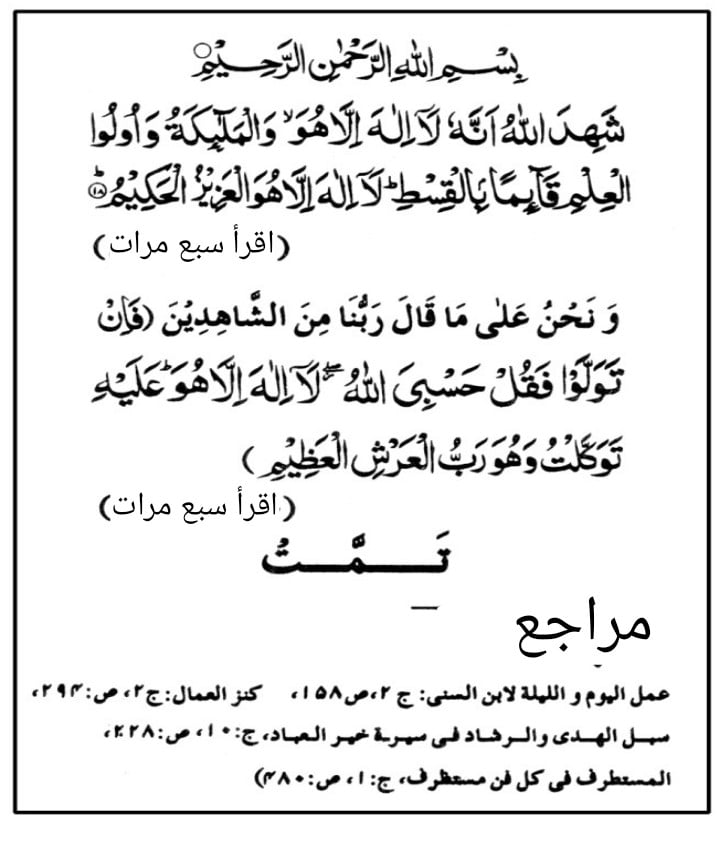 بِسْمِ اللهِ الرَّحْمٰنِ الرَّحِيْمِ
شَهِدَ اللهُ اَنَّهٗ لَآ اِلٰهَ اِلَّا هُوَۙ وَالْمَلٰٓئِكَةُ وَاُولُوا
الْعِلْمِ قَآئِمًۢا بِالْقِسْطِؕ لَآ اِلٰهَ اِلَّا هُوَ الْعَزِيْزُ الْحَكِيْمُؕ ﴿۱۸﴾
(اقرأ سبع مرات)
وَ نَحْنُ عَلٰى مَا قَالَ رَبُّنَا مِنَ الشَّاهِدِيْنَ (فَاِنْ
تَوَلَّوْا فَقُلْ حَسْبِىَ اللهُ ۖ لَآ اِلٰهَ اِلَّا هُوَؕ عَلَيْهِ
تَوَكَّلْتُ وَهُوَ رَبُّ الْعَرْشِ الْعَظِيْمِ)
(اقرأ سبع مرات)
تَمَّتُ
مراجع
عمل اليوم و الليلة لابن السنى: ج ۲، ص ۱۵۸، كنز العمال: ج ۲، ص: ۲۹۴،
سبل الهدى والرشاد فى سيرة خير العباد، ج: ۱۰، ص: ۲۲۸،
المستطرف فى كل فن مستظرف، ج: ۱، ص: ۴۸۰)